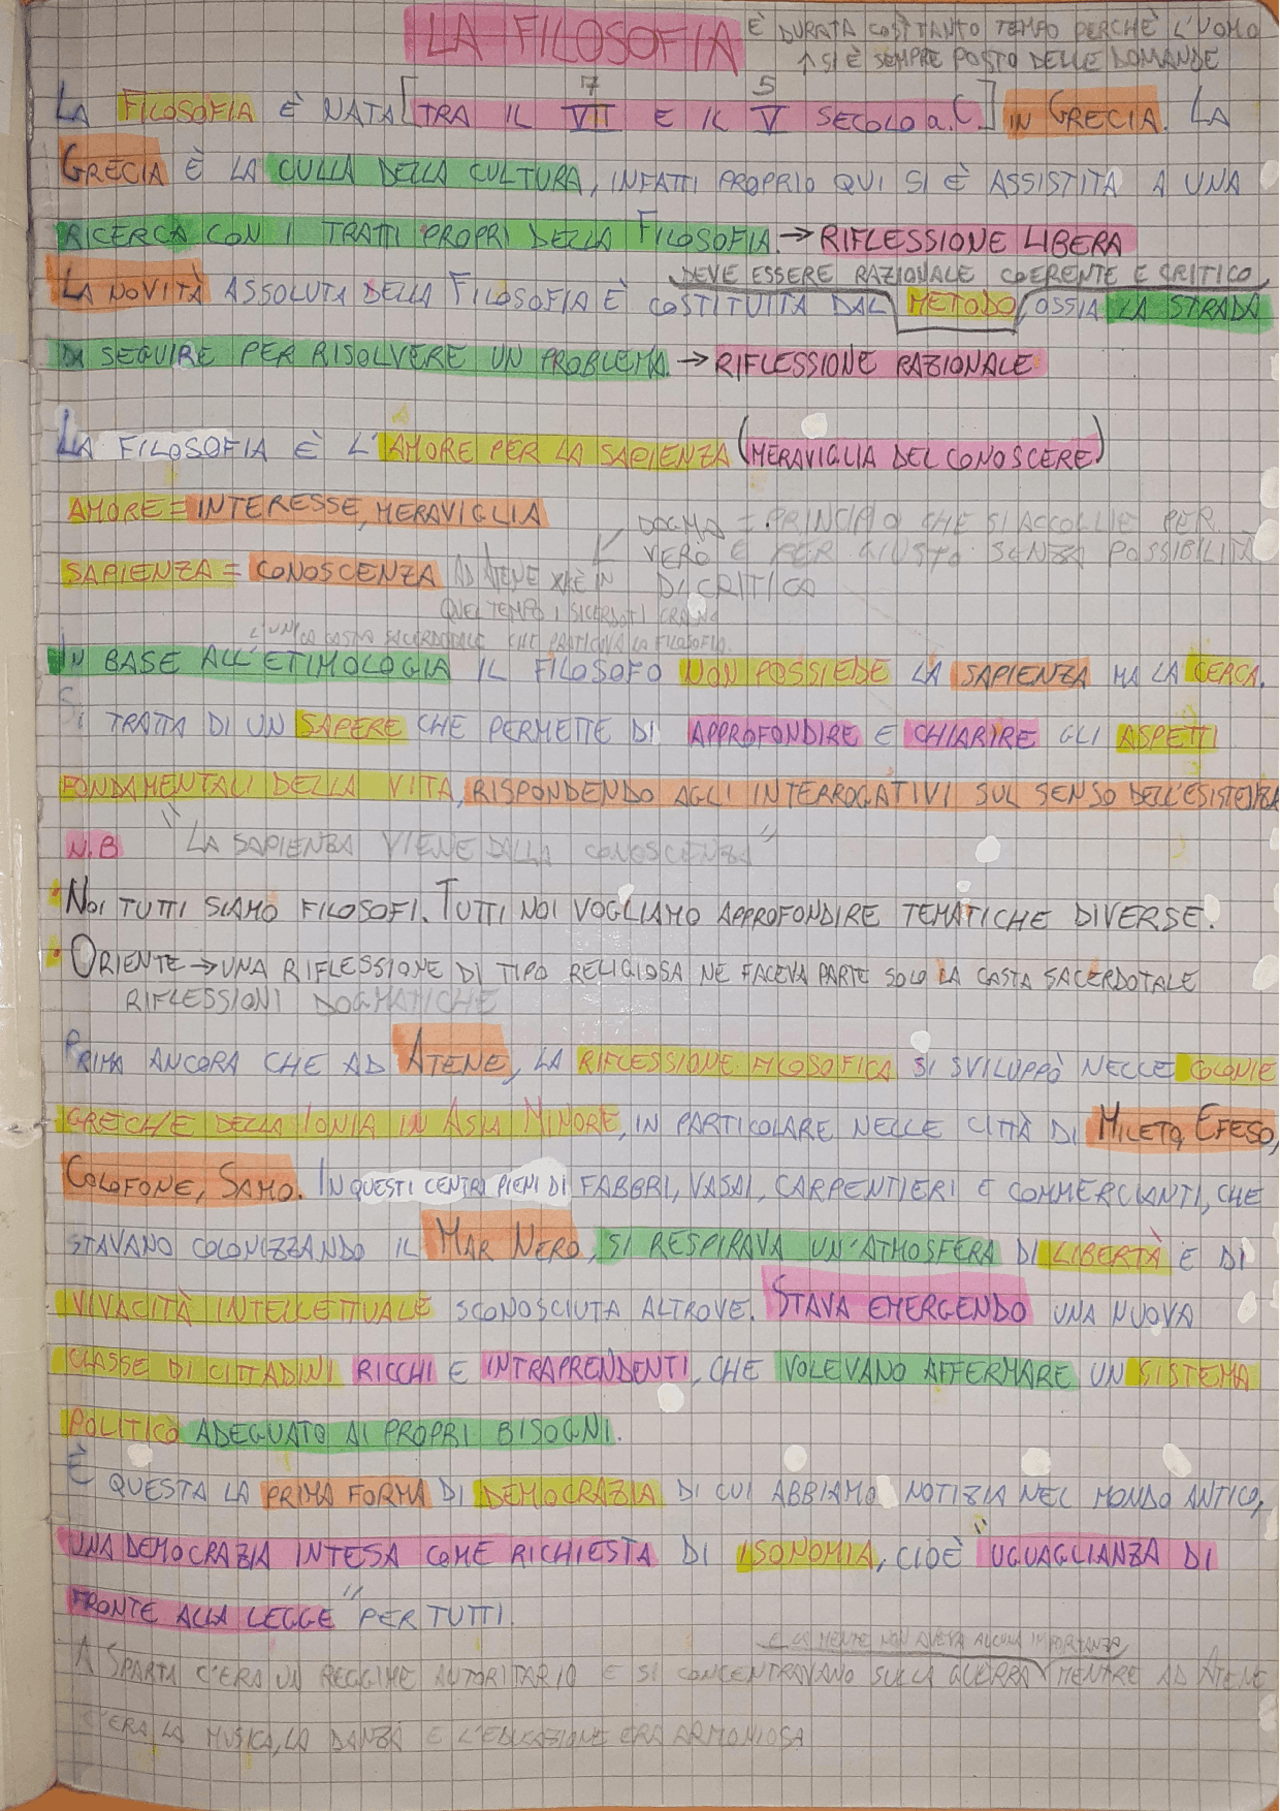 LA FILOSOFIA È DURATA COSÌ TANTO TEMPO PERCHÈ L'UOMO
↑ SI È SEMPRE POSTO DELLE DOMANDE
7 5
LA FILOSOFIA È NATA [TRA IL VII E IL V SECOLO a.C.] IN GRECIA. LA
GRECIA È LA CULLA DELLA CULTURA, INFATTI PROPRIO QUI SI È ASSISTITA A UNA
RICERCA CON I TRATTI PROPRI DELLA FILOSOFIA. → RIFLESSIONE LIBERA
DEVE ESSERE RAZIONALE COERENTE E CRITICO
LA NOVITÀ ASSOLUTA DELLA FILOSOFIA È COSTITUITA DAL METODO, OSSIA LA STRADA
DA SEGUIRE PER RISOLVERE UN PROBLEMA. → RIFLESSIONE RAZIONALE
LA FILOSOFIA È L'AMORE PER LA SAPIENZA (MERAVIGLIA DEL CONOSCERE)
AMORE = INTERESSE, MERAVIGLIA
DOGMA = PRINCIPIO CHE SI ACCOGLIE PER
VERO E PER GIUSTO SENZA POSSIBILITÀ
SAPIENZA = CONOSCENZA AD ATENE XKÈ IN DI CRITICA
QUEL TEMPO I SACERDOTI ERANO
L'UNICA CASTA SACERDOTALE CHE PRATICAVA LA FILOSOFIA.
IN BASE ALL'ETIMOLOGIA IL FILOSOFO NON POSSIEDE LA SAPIENZA MA LA CERCA.
SI TRATTA DI UN SAPERE CHE PERMETTE DI APPROFONDIRE E CHIARIRE GLI ASPETTI
FONDAMENTALI DELLA VITA, RISPONDENDO AGLI INTERROGATIVI SUL SENSO DELL'ESISTENZA
N.B "LA SAPIENZA VIENE DALLA CONOSCENZA"
• NOI TUTTI SIAMO FILOSOFI. TUTTI NOI VOGLIAMO APPROFONDIRE TEMATICHE DIVERSE.
• ORIENTE → UNA RIFLESSIONE DI TIPO RELIGIOSA NE FACEVA PARTE SOLO LA CASTA SACERDOTALE
RIFLESSIONI DOGMATICHE
PRIMA ANCORA CHE AD ATENE, LA RIFLESSIONE FILOSOFICA SI SVILUPPÒ NELLE COLONIE
GRECHE DELLA IONIA IN ASIA MINORE, IN PARTICOLARE NELLE CITTÀ DI MILETO, EFESO,
COLOFONE, SAMO. IN QUESTI CENTRI PIENI DI FABBRI, VASAI, CARPENTIERI E COMMERCIANTI, CHE
STAVANO COLONIZZANDO IL MAR NERO, SI RESPIRAVA UN'ATMOSFERA DI LIBERTÀ E DI
VIVACITÀ INTELLETTUALE SCONOSCIUTA ALTROVE. STAVA EMERGENDO UNA NUOVA
CLASSE DI CITTADINI RICCHI E INTRAPRENDENTI, CHE VOLEVANO AFFERMARE UN SISTEMA
POLITICO ADEGUATO AI PROPRI BISOGNI.
È QUESTA LA PRIMA FORMA DI DEMOCRAZIA DI CUI ABBIAMO NOTIZIA NEL MONDO ANTICO,
UNA DEMOCRAZIA INTESA COME RICHIESTA DI ISONOMIA, CIOÈ "UGUAGLIANZA DI
FRONTE ALLA LEGGE" PER TUTTI.
E LA MENTE NON AVEVA ALCUNA IMPORTANZA
A SPARTA C'ERA UN REGGIME AUTORITARIO E SI CONCENTRAVANO SULLA GUERRA MENTRE AD ATENE
C'ERA LA MUSICA, LA DANZA E L'EDUCAZIONE ERA ARMONIOSA